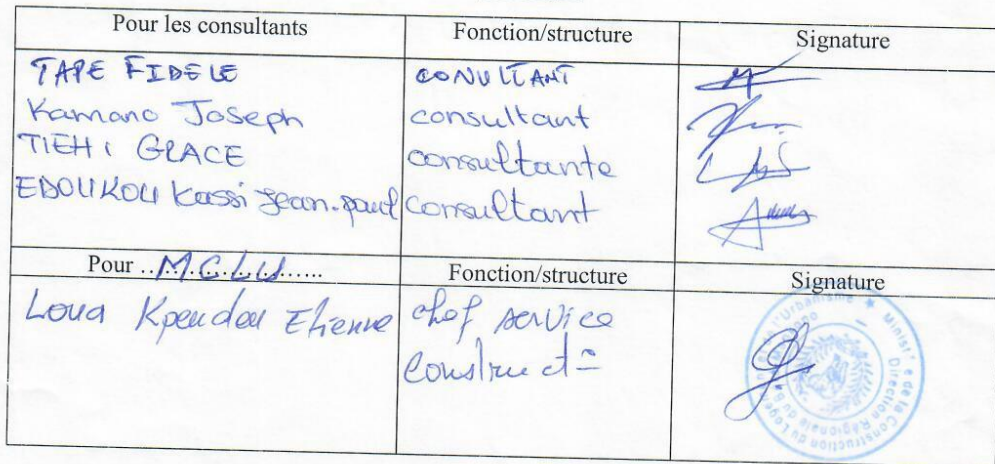 Pour les consultants Fonction/structure Signature
TAPE FIDELE CONULTANT
Kamano Joseph consultant
TIEHI GRACE consultante
EDOUKOU Kassi Jean-paul consultant
Pour ..M.C.L.U..... Fonction/structure Signature
Loua Kpendou Etienne chef service
Construct°
Ministère de la Construction du Logement et de l'Urbanisme
Direction Régionale du